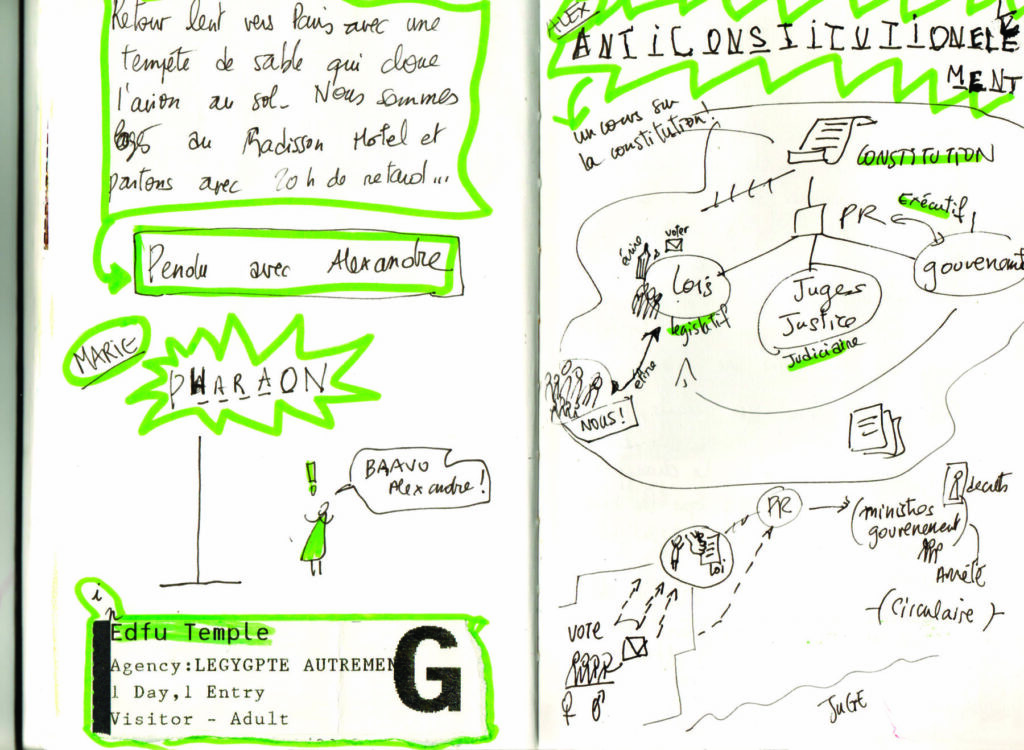 Retour lent vers Paris avec une
tempête de sable qui cloue
l'avion au sol. Nous sommes
logés au Radisson Hotel et
partons avec 20h de retard...
Pendu avec Alexandre
MARIE
PHARAON
!
BRAVO
Alexandre!
in
Edfu Temple
Agency:LEGYGPTE AUTREMEN
1 Day,1 Entry
Visitor - Adult
G
ALEX
ANTICONSTITUTIONELLE
MENT
un cours sur
la constitution!
CONSTITUTION
PR
Exécutif
gouvernement
voter
écrire
Lois
législatif
Juges
Justice
Judiciaire
élire
NOUS!
PR
(ministres
gouvernement)
décrets
Arrêté
(Circulaire)
loi
vote
JUGE